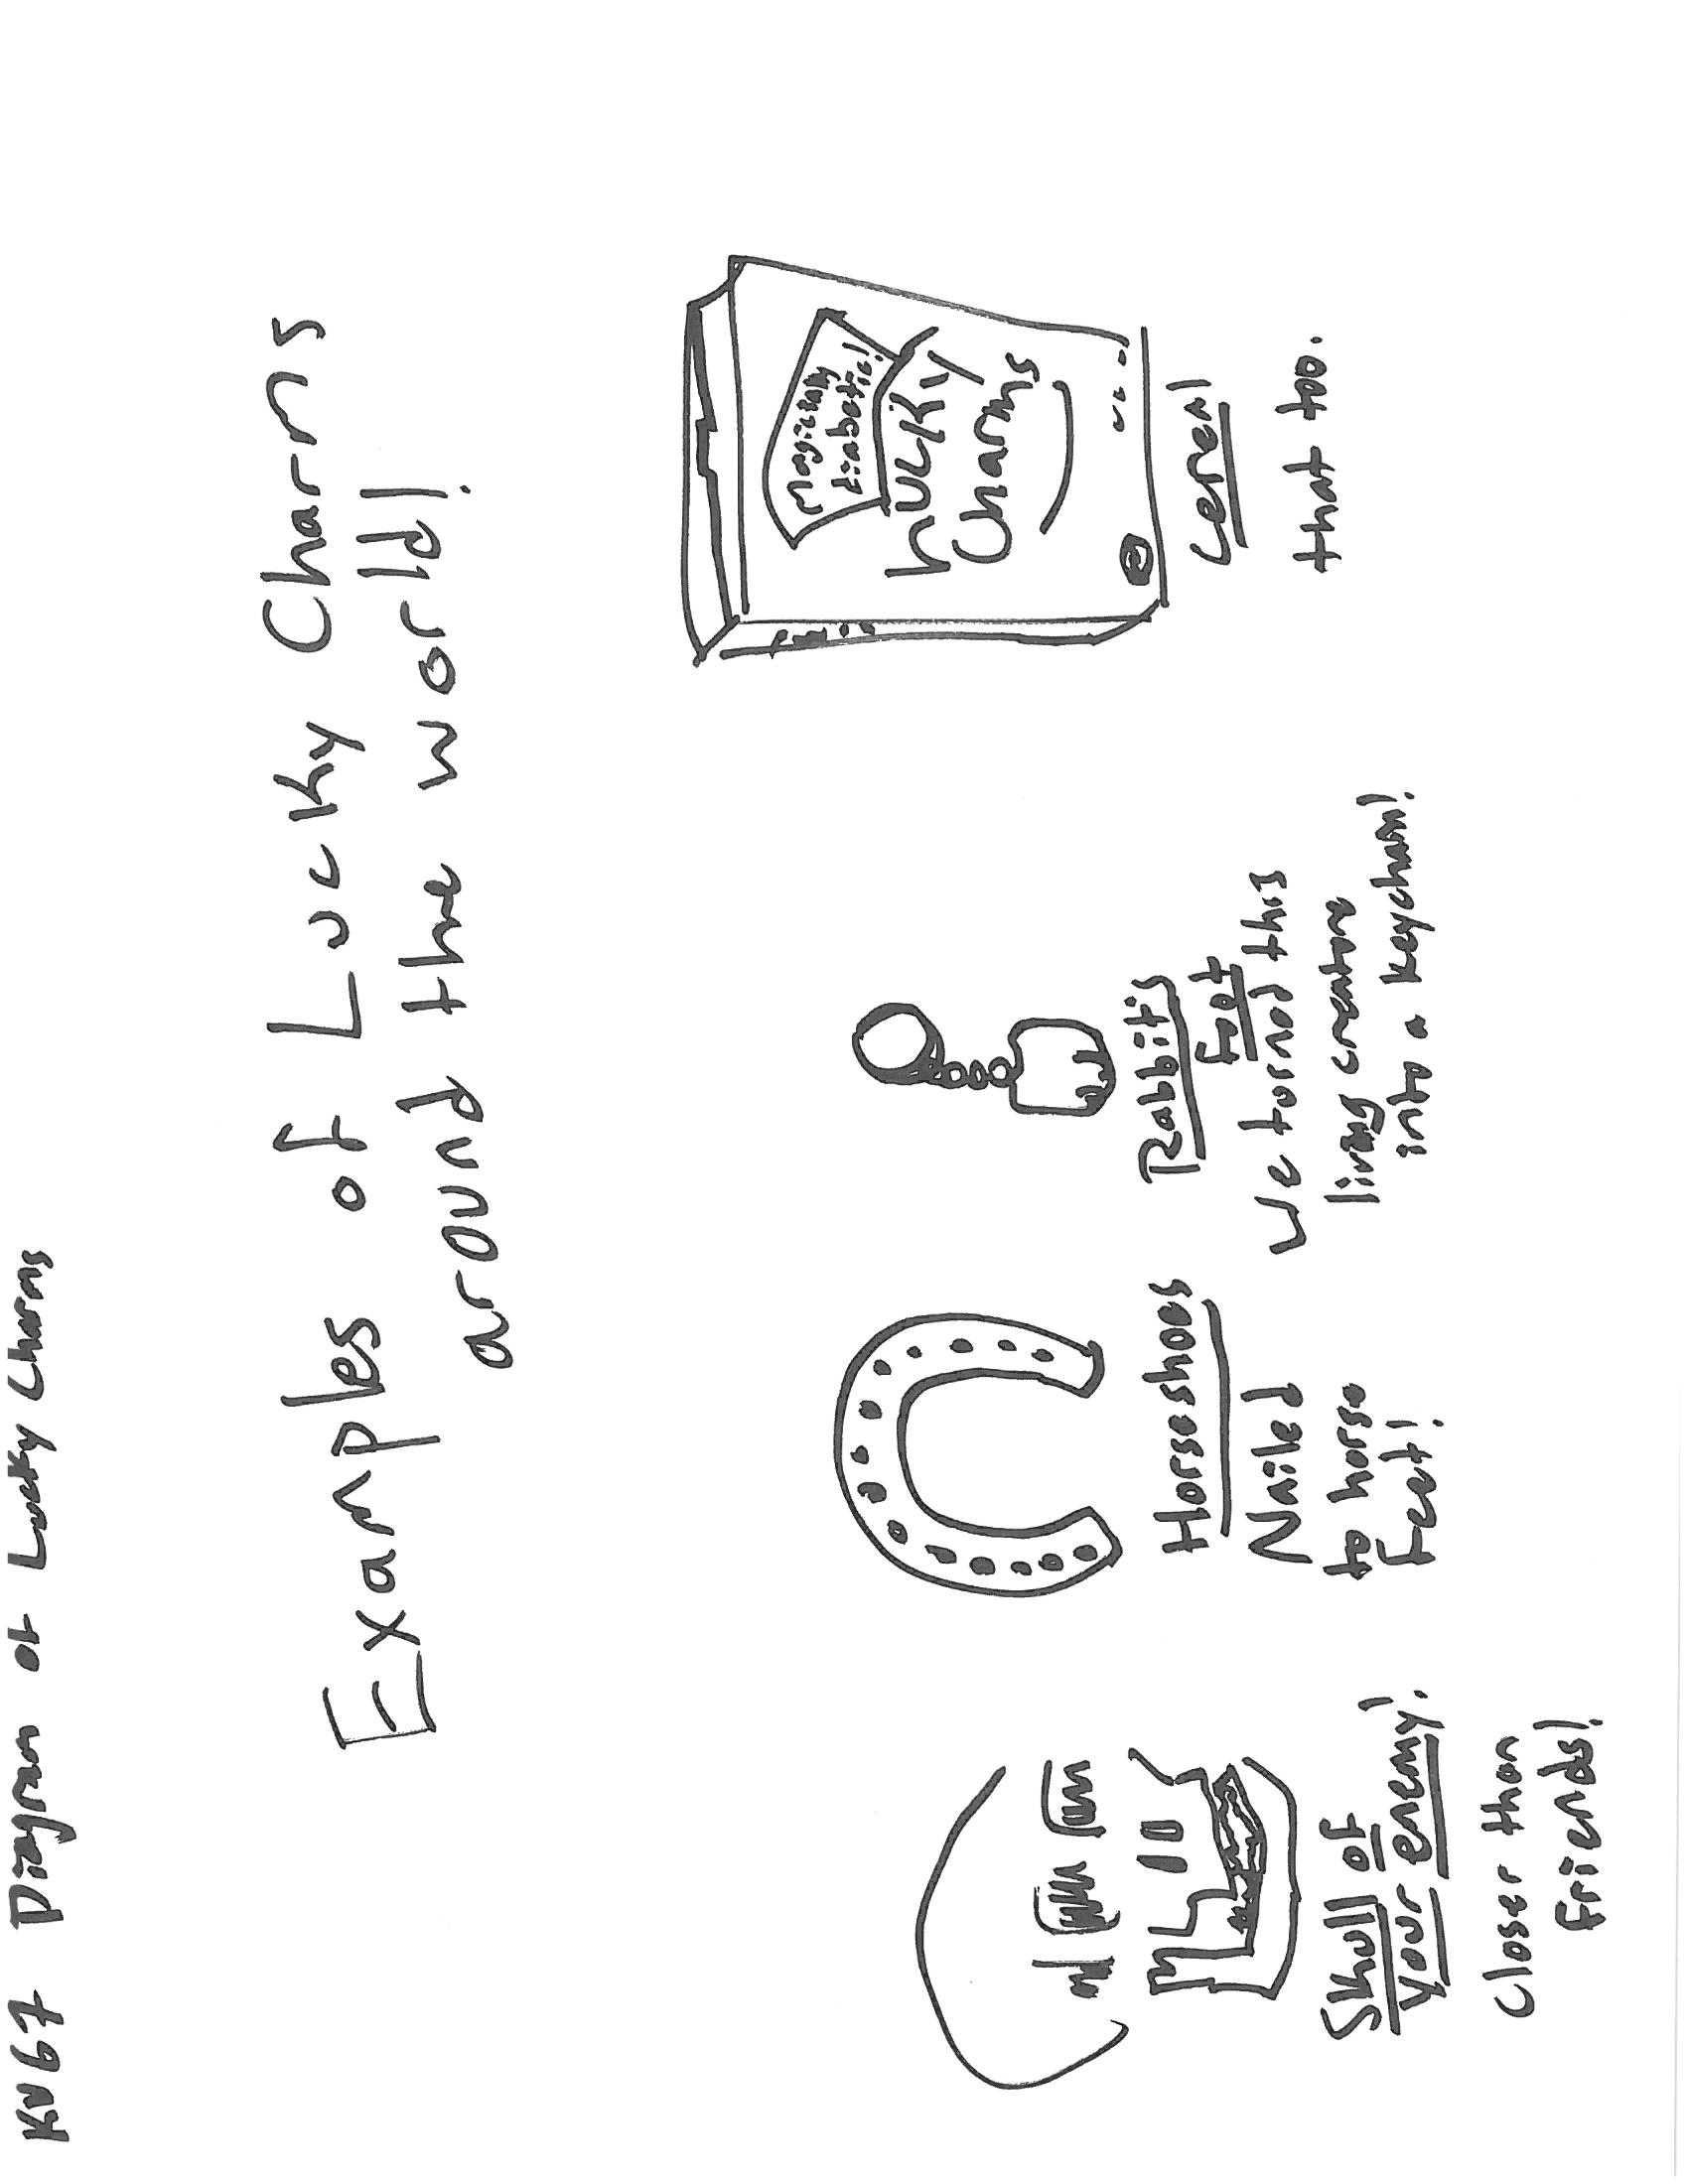 KV67 Diagram of Lucky Charms
Examples of Lucky Charms
around the world!
Skull of
your enemy!
Closer than
friends!
Horseshoes
Nailed
to horse
feet!
Rabbits
foot
We turned this
living creature
into a keychain!
Magically
diabetic!
Lucky
Charms
Cereal
that too.